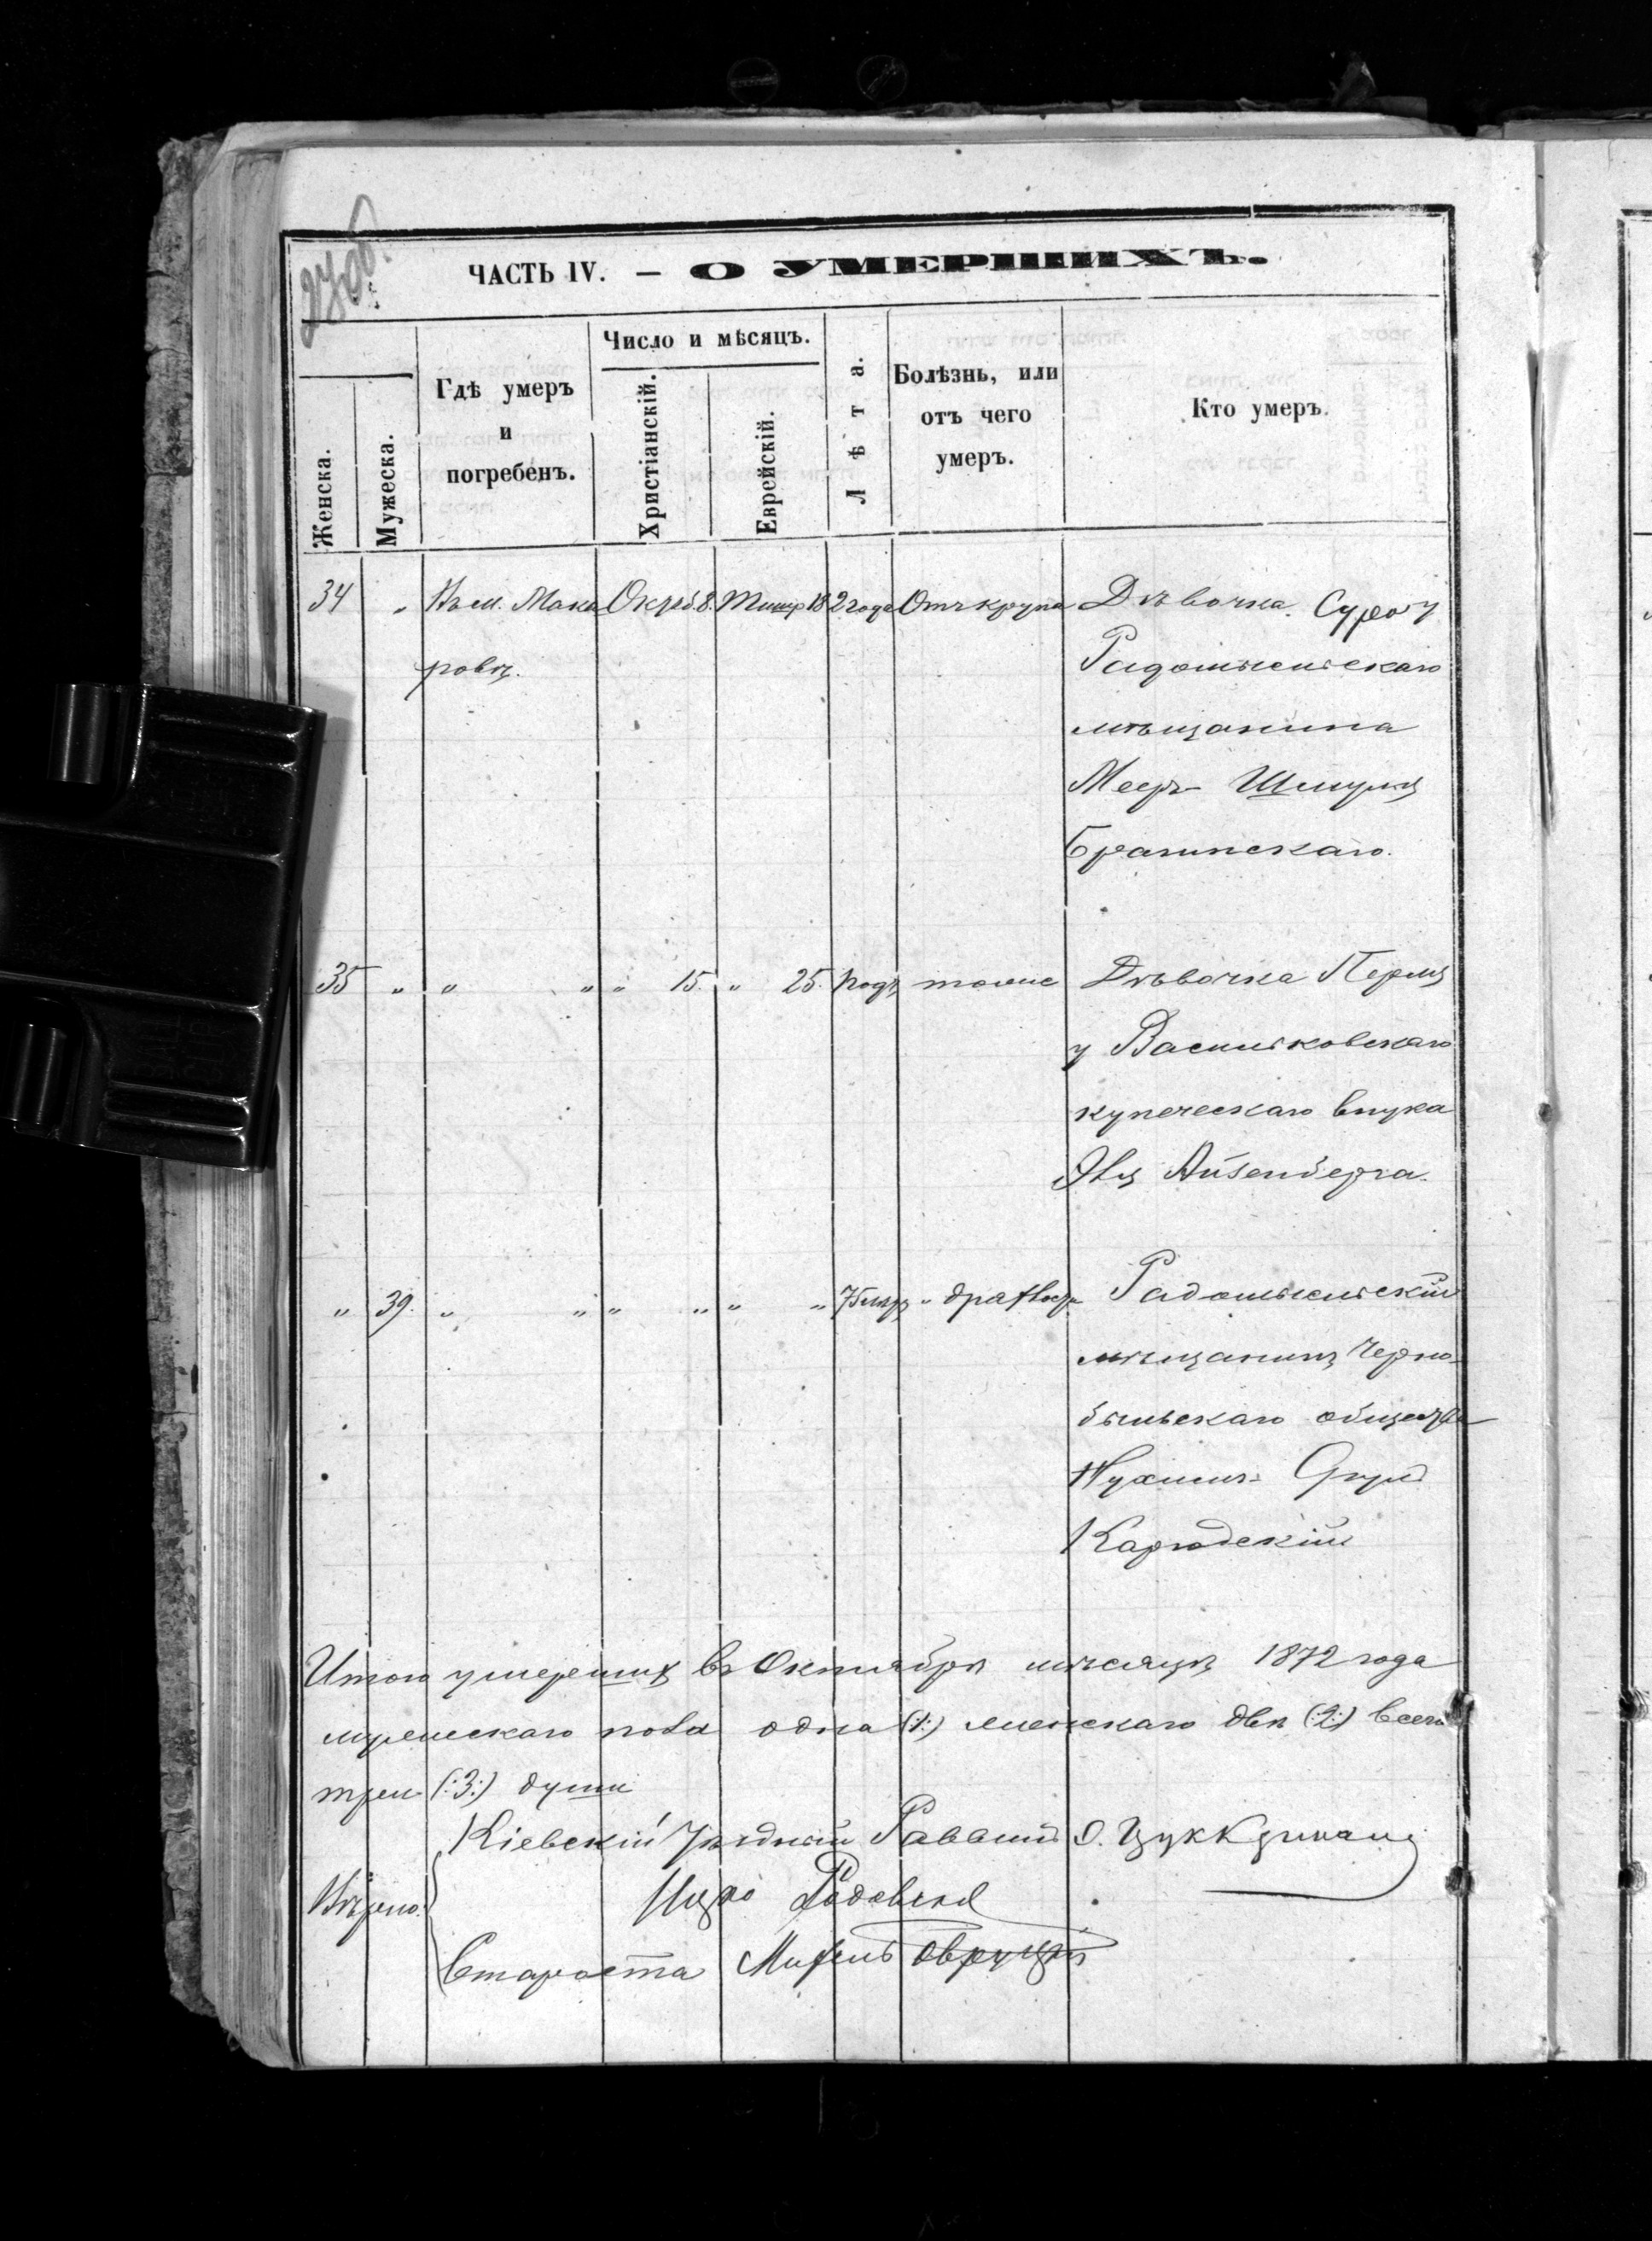 270б.
ЧАСТЬ IV. — О УМЕРШИХЪ.
Женска.
Мужеска.
Гдѣ умеръ
и
погребенъ.
Число и мѣсяцъ.
Христіанскій.
Еврейскій.
Лѣта.
Болѣзнь, или
отъ чего
умеръ.
Кто умеръ.
34 „ Въ м. Мака Октяб. 8. Тишр 18 2 года Отъ крупа Дѣвочка Сура у
ровѣ. Радомысльскаго
мѣщанина
Меер- Шмуля
Брагинскаго.
35 „ „ „ „ 15. „ 25. Годъ тоже Дѣвочка Перля
у Васильковскаго
купеческаго внука
Айзенберга.
„ 39. „ „ „ „ „ „ 75 лѣтъ Радомысльскій
мѣщанинъ Черно-
быльскаго общества
Нухимъ- Сруль
Карюдскій
Итого умершихъ въ Октябрѣ мѣсяцѣ 1872 года
мужескаго пола одна (:1:) женскаго двѣ (:2:) всего
три (:3:) души
Кіевскій Уѣздный Раввинъ О. Цуккерманъ
Вѣрно:
Староста Михель Овруцкій